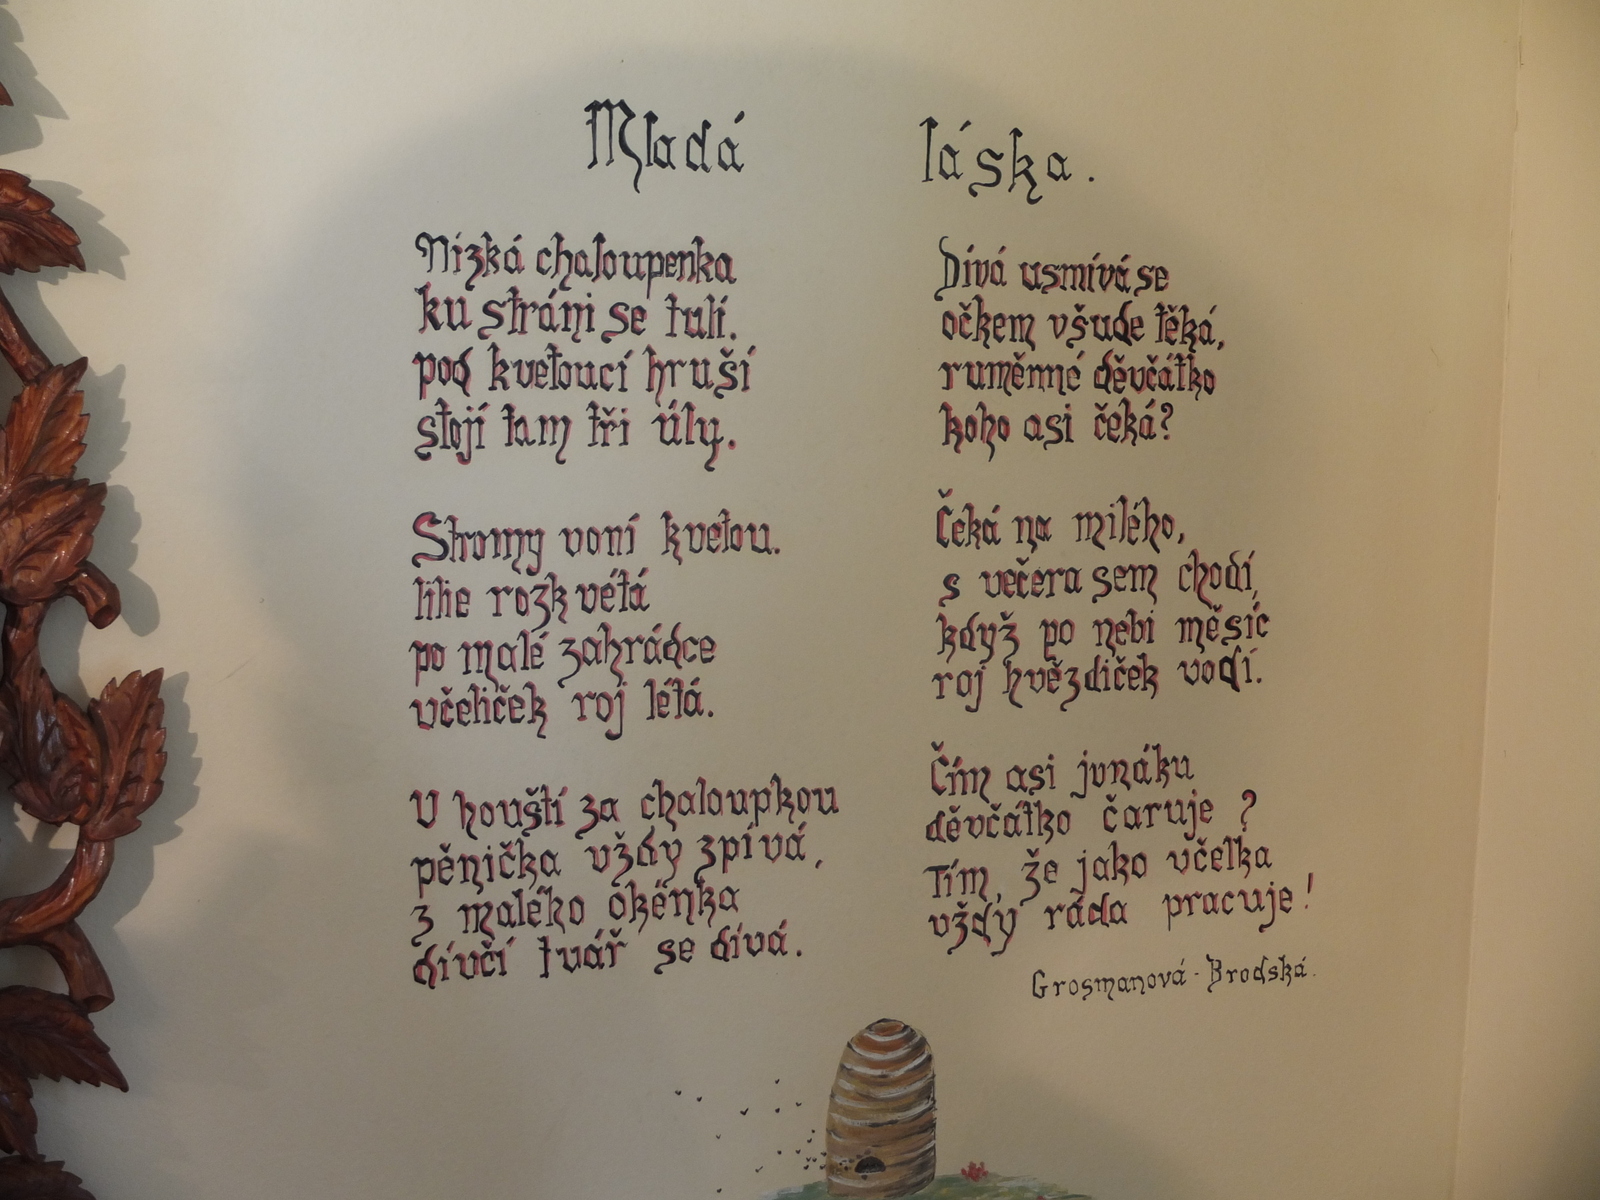 Mladá láska.
Nízká chaloupenka
ku stráni se tulí.
pod kvetoucí hruší
stojí tam tři úly.
Stromy voní kvetou.
lilie rozkvétá
po malé zahrádce
včeliček roj létá.
V houští za chaloupkou
pěnička vždy zpívá,
z malého okénka
dívčí tvář se dívá.
Dívá usmívá se
očkem všude těká,
ruměnné děvčátko
koho asi čeká?
Čeká na milého,
s večera sem chodí,
když po nebi měsíc
roj hvězdiček vodí.
Čím asi junáku
děvčátko čaruje ?
Tím, že jako včelka
vždy ráda pracuje!
Grosmanová - Brodská.